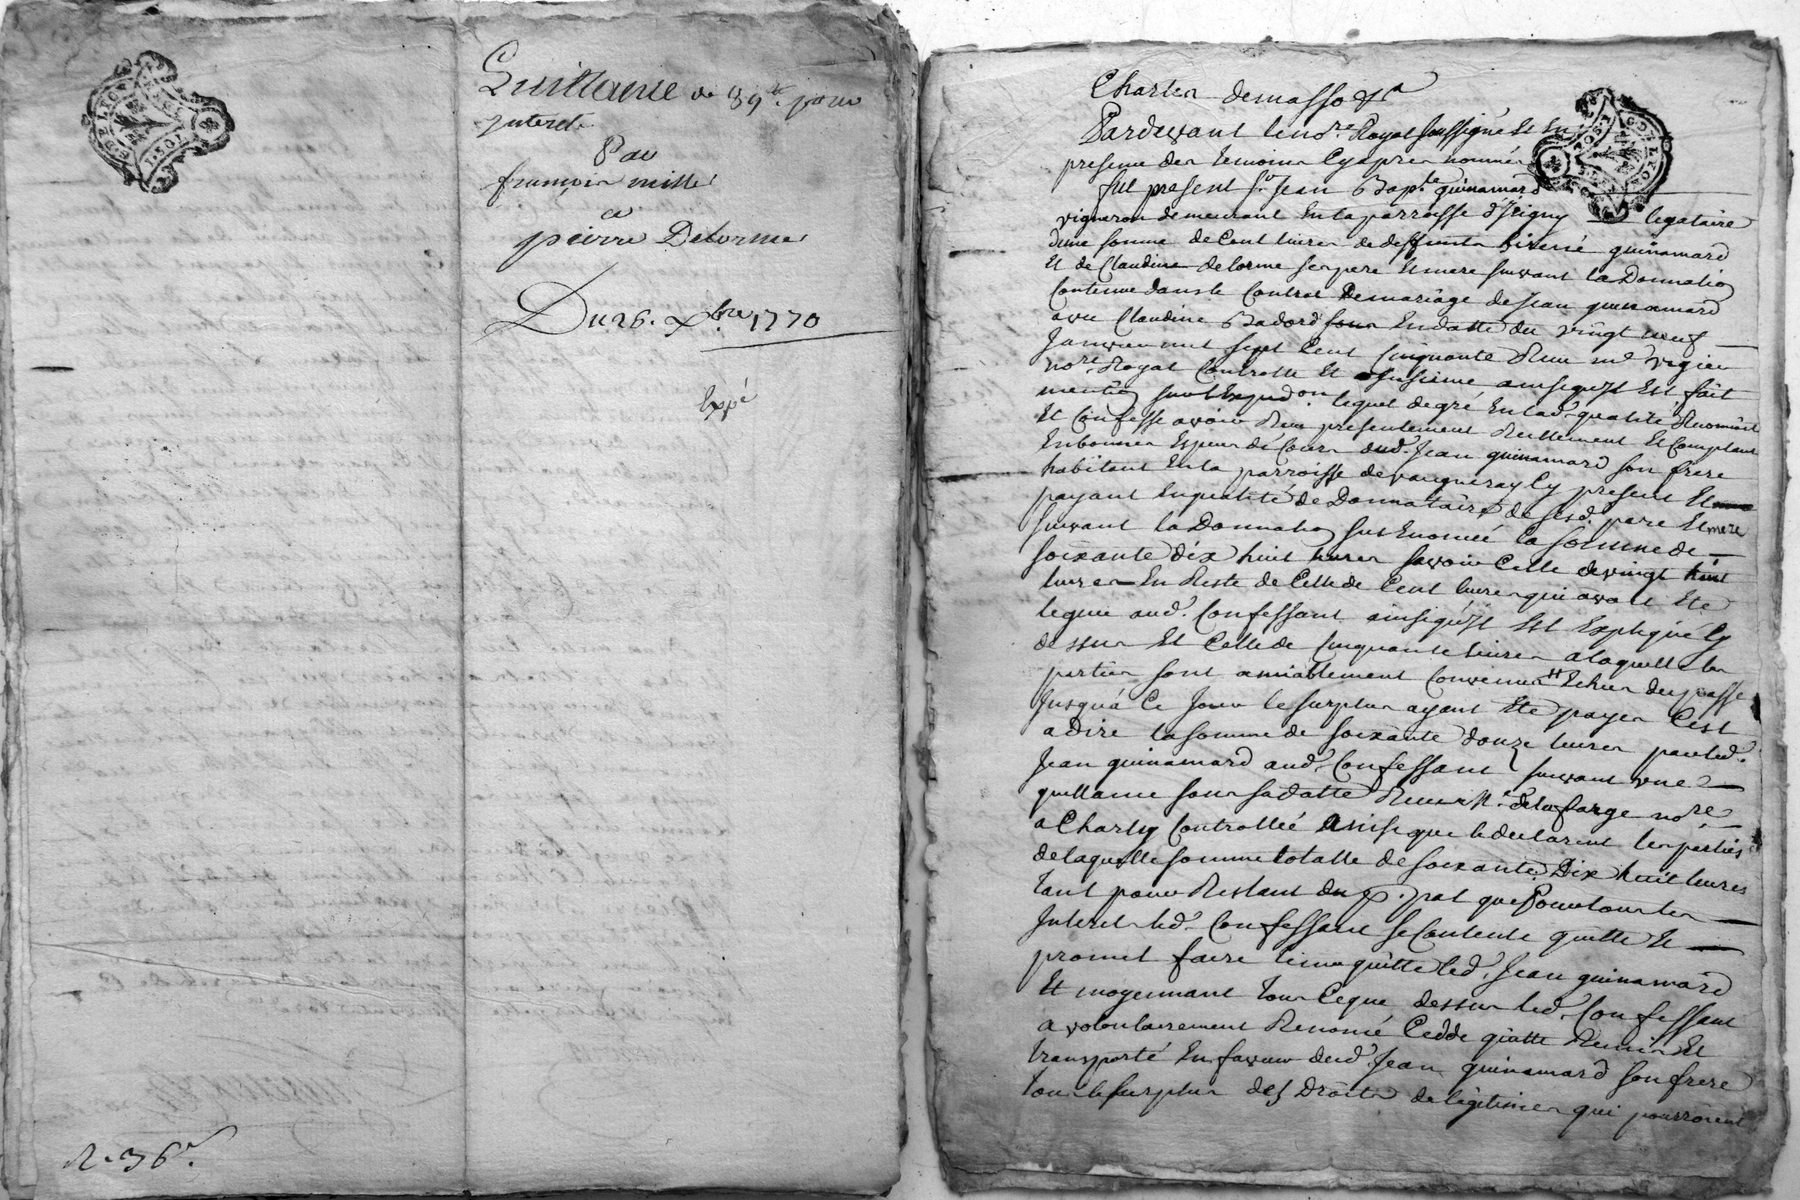 Quittance de 39# pour
Interets
Par
françois millet
a
pierre Delorme
Du 26. xbre 1770
Expé
R. 36s.
Pardevant le no.re Royal soussigné Et En
presence des temoins Cyapres nommés
fut present sr. Jean Bapt.te guinamard
vigneron demeurant En la parroisse d'Irigny legataire
d'une somme de Cent livres de deffunts guinamard
Et de Claudine delorme ses pere Et mere suivant la Donnation
Contenue dans le Contrat de mariage de Jean guinamard
avec Claudine Badord sous En datte du vingt neuf
Janvier mil sept Cent Cinquante Reçu me
no.re Royal Controllé Et Insinué ainsi qu'Il Est fait
mention lequel de gré En lad. qualité
Et Confesse avoir Reçu presentement Reellement Et Comptant
En bonnes Especes de Cours dud. Jean guinamard son frere
habitant En la parroisse de vaugneray Cy present Et
payant En qualité de Donnataire de sesd. pere Et mere
suivant la Donnation sus Enoncée la somme de
soixante dix huit livres savoir Celle de vingt huit
livres En Reste de Celle de Cent livres qui avoit Eté
leguée aud. Confessant ainsi qu'Il Est Expliqué Cy
dessus Et Celle de Cinquante livres a laquelle les
parties sont amiablement Convenues
Jusqu'à Ce Jour le surplus ayant Eté payer C'est
a Dire la somme de soixante douze livres par led.
Jean guinamard aud. Confessant suivant une
quittance sous sa datte Reçue me. delafarge no.re
a Charly Controllée Ainsi que le declarent les parties
de laquelle somme totalle de soixante Dix huit livres
tant pour Restant du p.pal que Pour tous les
Interets led. Confessant se Contente quitte Et
promet faire tenir quitte led. Jean guinamard
Et moyennant tout Ceque dessus led. Confessant
a volontairement Renoncé Cedde quitte Remis Et
transporté En faveur dud. Jean guinamard son frere
tous le surplus des Droits de legitimes qui pourroient